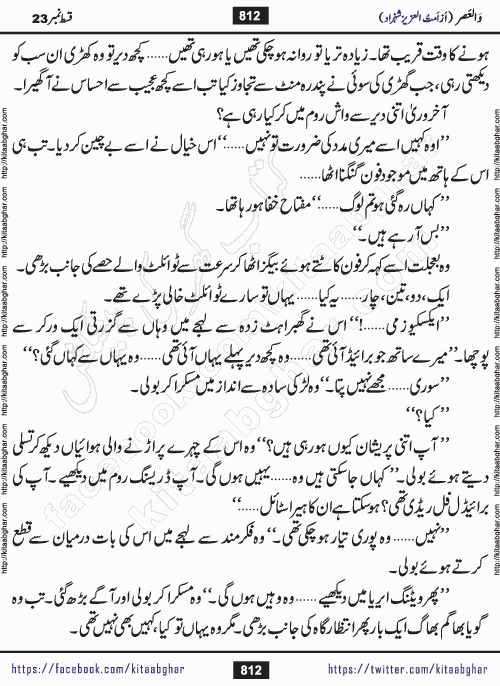 والعصر (از اَمتُ العزیز شہزاد)
812
قسط نمبر 23
ہونے کا وقت قریب تھا۔ زیادہ تر یا تو روانہ ہوچکی تھیں یا ہو رہی تھیں…… کچھ دیر تو وہ کھڑی ان سب کو
دیکھتی رہی، جب گھڑی کی سوئی نے پندرہ منٹ سے تجاوز کیا تب اسے کچھ عجیب سے احساس نے آگھیرا۔
آخر وریٰ اتنی دیر سے واش روم میں کر کیا رہی ہے؟
’’اوہ کہیں اسے میری مدد کی ضرورت تو نہیں……‘‘ اس خیال نے اسے بے چین کر دیا۔ تب ہی
اس کے ہاتھ میں موجود فون گنگنا اٹھا……
’’کہاں رہ گئی ہو تم لوگ……‘‘ مفتاح خفا ہو رہا تھا۔
’’بس آ رہے ہیں۔‘‘
وہ بعجلت اسے کہہ کر فون کاٹتے ہوئے بیگز اٹھا کر سرعت سے ٹوائلٹ والے حصے کی جانب بڑھی۔
ایک، دو، تین، چار…… یہ کیا…… یہاں تو سارے ٹوائلٹ خالی پڑے تھے۔
’’ایکسکیوز می……!‘‘ اس نے گھبراہٹ زدہ سے لہجے میں وہاں سے گزرتی ایک ورکر سے
پوچھا۔ ’’میرے ساتھ جو برائیڈ آئی تھی…… وہ کچھ دیر پہلے یہاں آئی تھی…… وہ یہاں سے کہاں گئی؟‘‘
’’سوری…… مجھے نہیں پتا۔‘‘ وہ لڑکی سادہ سے انداز میں مسکرا کر بولی۔
’’کیا؟‘‘
’’آپ اتنی پریشان کیوں ہو رہی ہیں؟‘‘ وہ اس کے چہرے پر اڑنے والی ہوائیاں دیکھ کر تسلی
دیتے ہوئے بولی۔ ’’کہاں جاسکتی ہیں وہ…… یہیں ہوں گی۔ آپ ڈریسنگ روم میں دیکھیے۔ آپ کی
برائیڈل فل ریڈی تھی؟ ہوسکتا ہے ان کا ہیر اسٹائل……‘‘
’’نہیں…… وہ پوری تیار ہوچکی تھی۔‘‘ وہ فکرمند سے لہجے میں اس کی بات درمیان سے قطع
کرتے ہوئے بولی۔
’’پھر ویٹنگ ایریا میں دیکھیے…… وہ وہیں ہوں گی۔‘‘ وہ مسکرا کر بولی اور آگے بڑھ گئی۔ تب وہ
گویا بھاگم بھاگ ایک بار پھر انتظار گاہ کی جانب بڑھی۔ مگر وہ یہاں تو کیا، کہیں بھی نہیں تھی۔
https://facebook.com/kitaabghar
812
https://twitter.com/kitaabghar
http://kitaabghar.com
http://kitaabghar.com